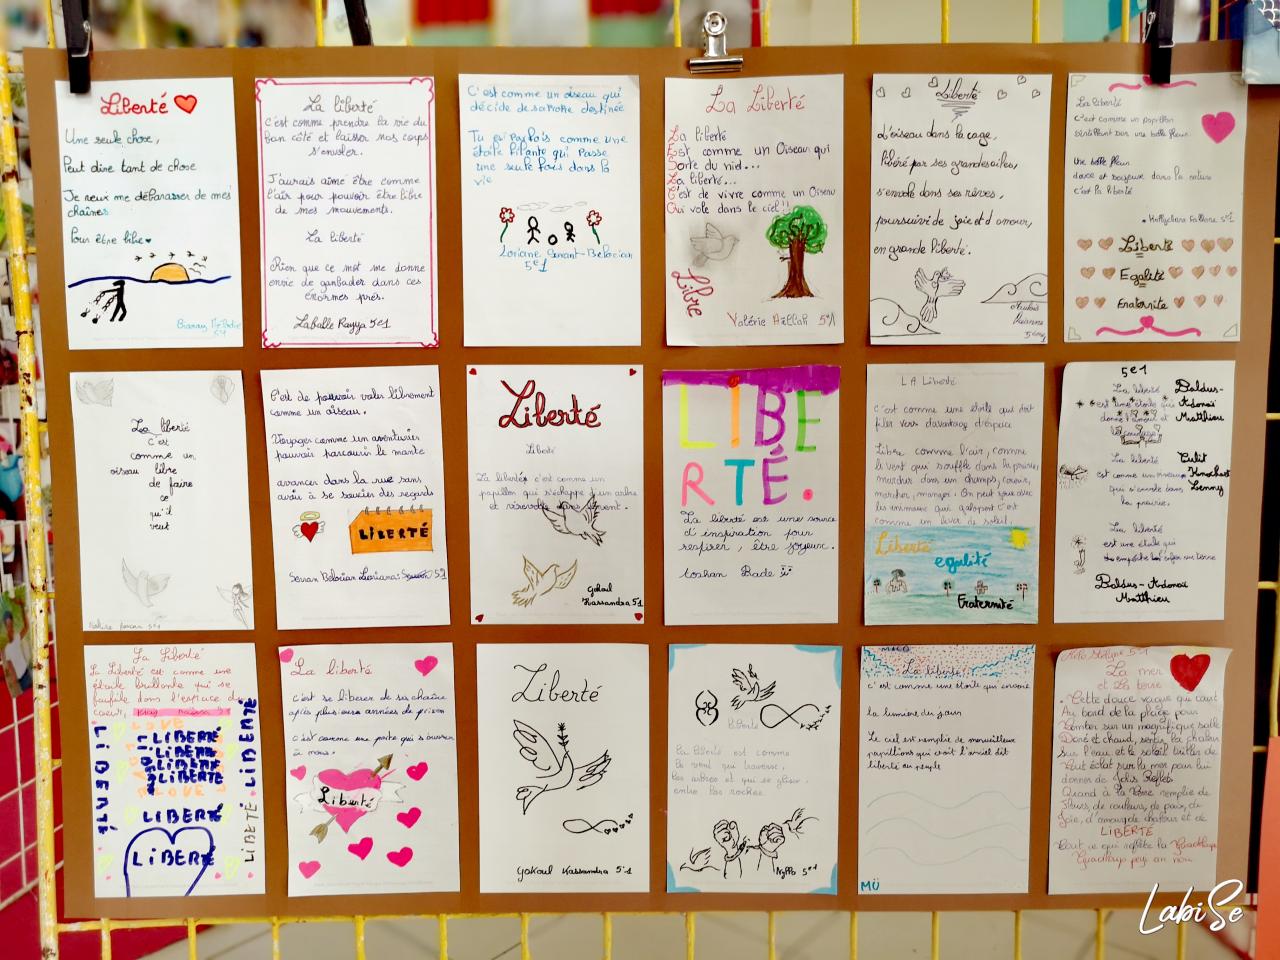 Liberté
Une seule chose,
Peut dire tant de chose
Je veux me débarasser de mes
chaînes
Pour être libre
5e1
La liberté
c'est comme prendre la vie du
bon côté et laisser nos corps
s'envoler.
J'aurais aimé être comme
l'air pour pouvoir être libre
de mes mouvements.
La liberté
Rien que ce mot me donne
envie de gambader dans ces
énormes prés.
Laballe Rayya 5e1
C'est comme un oiseau qui
décide de sa propre destinée
Tu es parfois comme une
étoile filante qui passe
une seule fois dans la
vie
Loriane
5e1
La Liberté
La liberté
Est comme un Oiseau qui
Sorte du nid...
La liberté...
C'est de vivre comme un Oiseau
Qui vole dans le ciel!!
Libre
Valérie 5e1
Liberté
L'oiseau dans la cage,
libéré par ses grandes ailes,
s'envole dans ses rêves,
poursuivi de joie et d'amour,
en grande liberté.
La liberté
c'est comme un papillon
scintillant sur une belle fleur.
Une belle fleur
douce et soyeuse dans la nature
c'est la liberté
5e1
Liberté
Egalité
Fraternite
La liberté
c'est
comme un
oiseau libre
de faire
ce
qu'il
veut
5e1
C'est de pouvoir voler librement
comme un oiseau.
Voyager comme un aventurier
pouvoir parcourir le monte
avancer dans la rue sans
avoir à se soucier des regards
LiBERTÉ
5e1
Liberté
Liberté
La liberté c'est comme un
papillon qui s'échappe d'un arbre
et vient dans le vent.
Gokoul
Kassandra 5e1
LIBE
RTÉ.
La liberté est une source
d'inspiration pour
respirer, être joyeux.
Bade
LA Liberté
c'est comme une étoile qui doit
filer vers davantage d'espace
Libre comme l'air, comme
le vent qui souffle dans la prairie
marcher dans un champs, courir,
marcher, manger. On peut jouer avec
les animaux qui galopent c'est
comme un lever de soleil.
Liberté
egalité
Fraternité
5e1
La liberté
est une étoile qui
donne l'amour et
le courage
Baldus-
Adonaï
Matthieu
La liberté
est comme un oiseau
qui s'envole dans
la prairie.
Lenny
La liberté
est une étoile qui
Baldus-Adonaï
Matthieu
La Liberté
La Liberté est comme une
étoile brillante qui se
faufile dans l'espace du
coeur,
LOVE
LIBERTÉ
LIBERTÉ
LIBERTÉ
LIBERTÉ
LOVE
LIBERTÉ
LIBERTÉ
LiBERTÉ
La liberté
c'est se liberer de sa chaîne
après plusieurs années de prison
c'est comme une porte qui s'ouvre
à nous.
Liberté
Liberté
Gokoul Kassandra 5e1
liberté
La liberté est comme
le vent qui traverse,
les arbres et qui se glisse
entre les roches.
5e1
La liberté
c'est comme une étoile qui envoie
la lumière du jour
Le ciel est remplie de merveilleux
papillons qui
liberté au peuple
MÜ
5e1
La mer
et la terre
Cette douce vague qui court
Au bord de la plage pour
Tomber sur un magnifique sable
Doré et chaud, sentir la chaleur
sur l'eau, et le soleil briller de
tout éclat sur la mer pour lui
donner de Jolis Reflets
Quand à la Terre remplie de
fleurs, de couleurs, de paix, de
Joie, d'amour, de chaleur et de
LIBERTÉ
Tout ce qui reflète la Guadeloupe
LabiSe